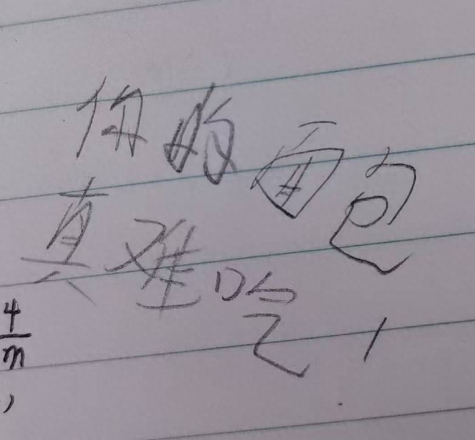 你的面包
真难吃！
4/m
,